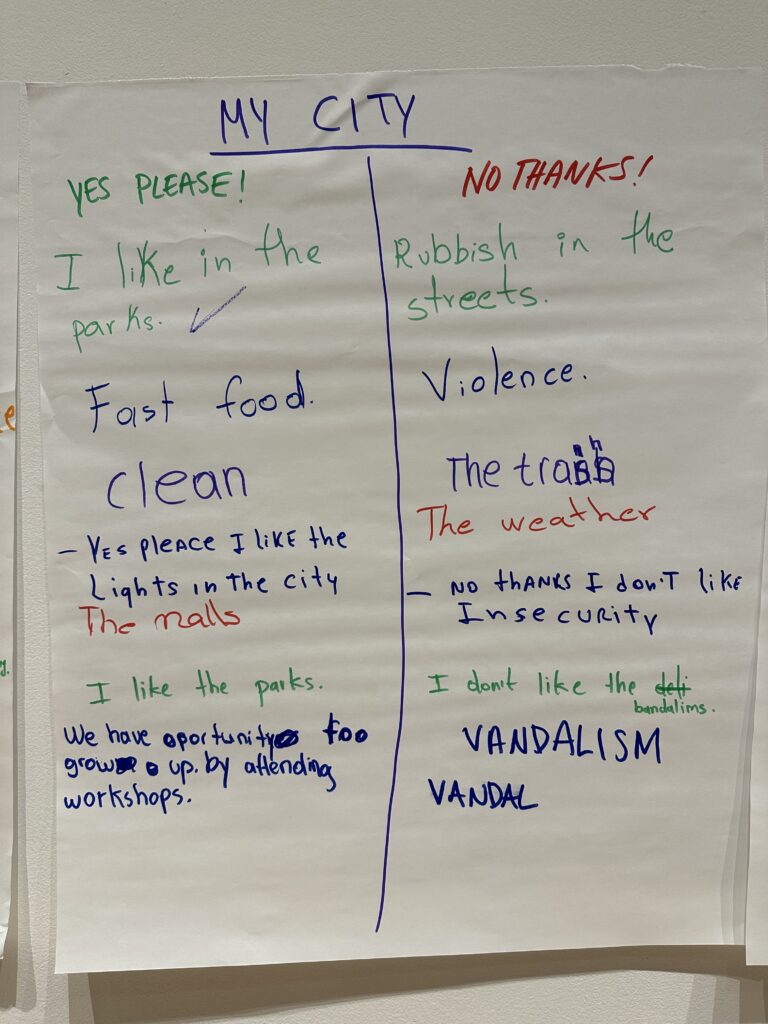 MY CITY
YES PLEASE!
I like in the
parks.
Fast food.
clean
- YES pleACE I lIKE the
Lights in the city
The malls
I like the parks.
We have oportunity too
grow up. by attending
workshops.
NO THANKS!
Rubbish in the
streets.
Violence.
The trash
The weather
- NO thANKS I don't like
InsecuRity
I don't like the deli
bandalims.
VANDALISM
VANDAL
e
g.